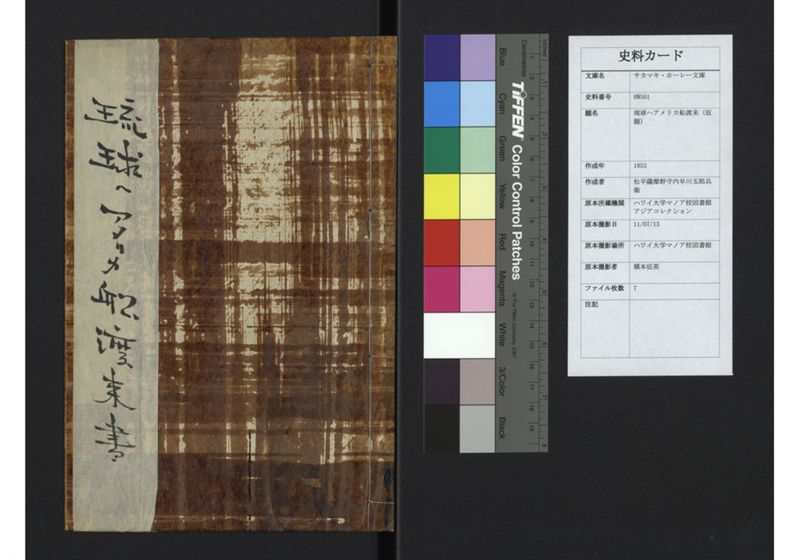 琉球へアメリカ船渡来書
inches
Centimetres
TIFFEN Color Control Patches
© The Tiffen Company, 2007
Blue
Cyan
Green
Yellow
Red
Magenta
White
3/Color
Black
史料カード
文庫名 サカマキ・ホーレー文庫
史料番号 HW501
題名 琉球へアメリカ船渡来（仮
題）
作成年 1853
作成者 松平薩摩野守内早川五郎兵
衛
原本所蔵機関 ハワイ大学マノア校図書館
アジアコレクション
原本撮影日 11/07/13
原本撮影場所 ハワイ大学マノア校図書館
原本撮影者 横本征英
ファイル枚数 7
注記